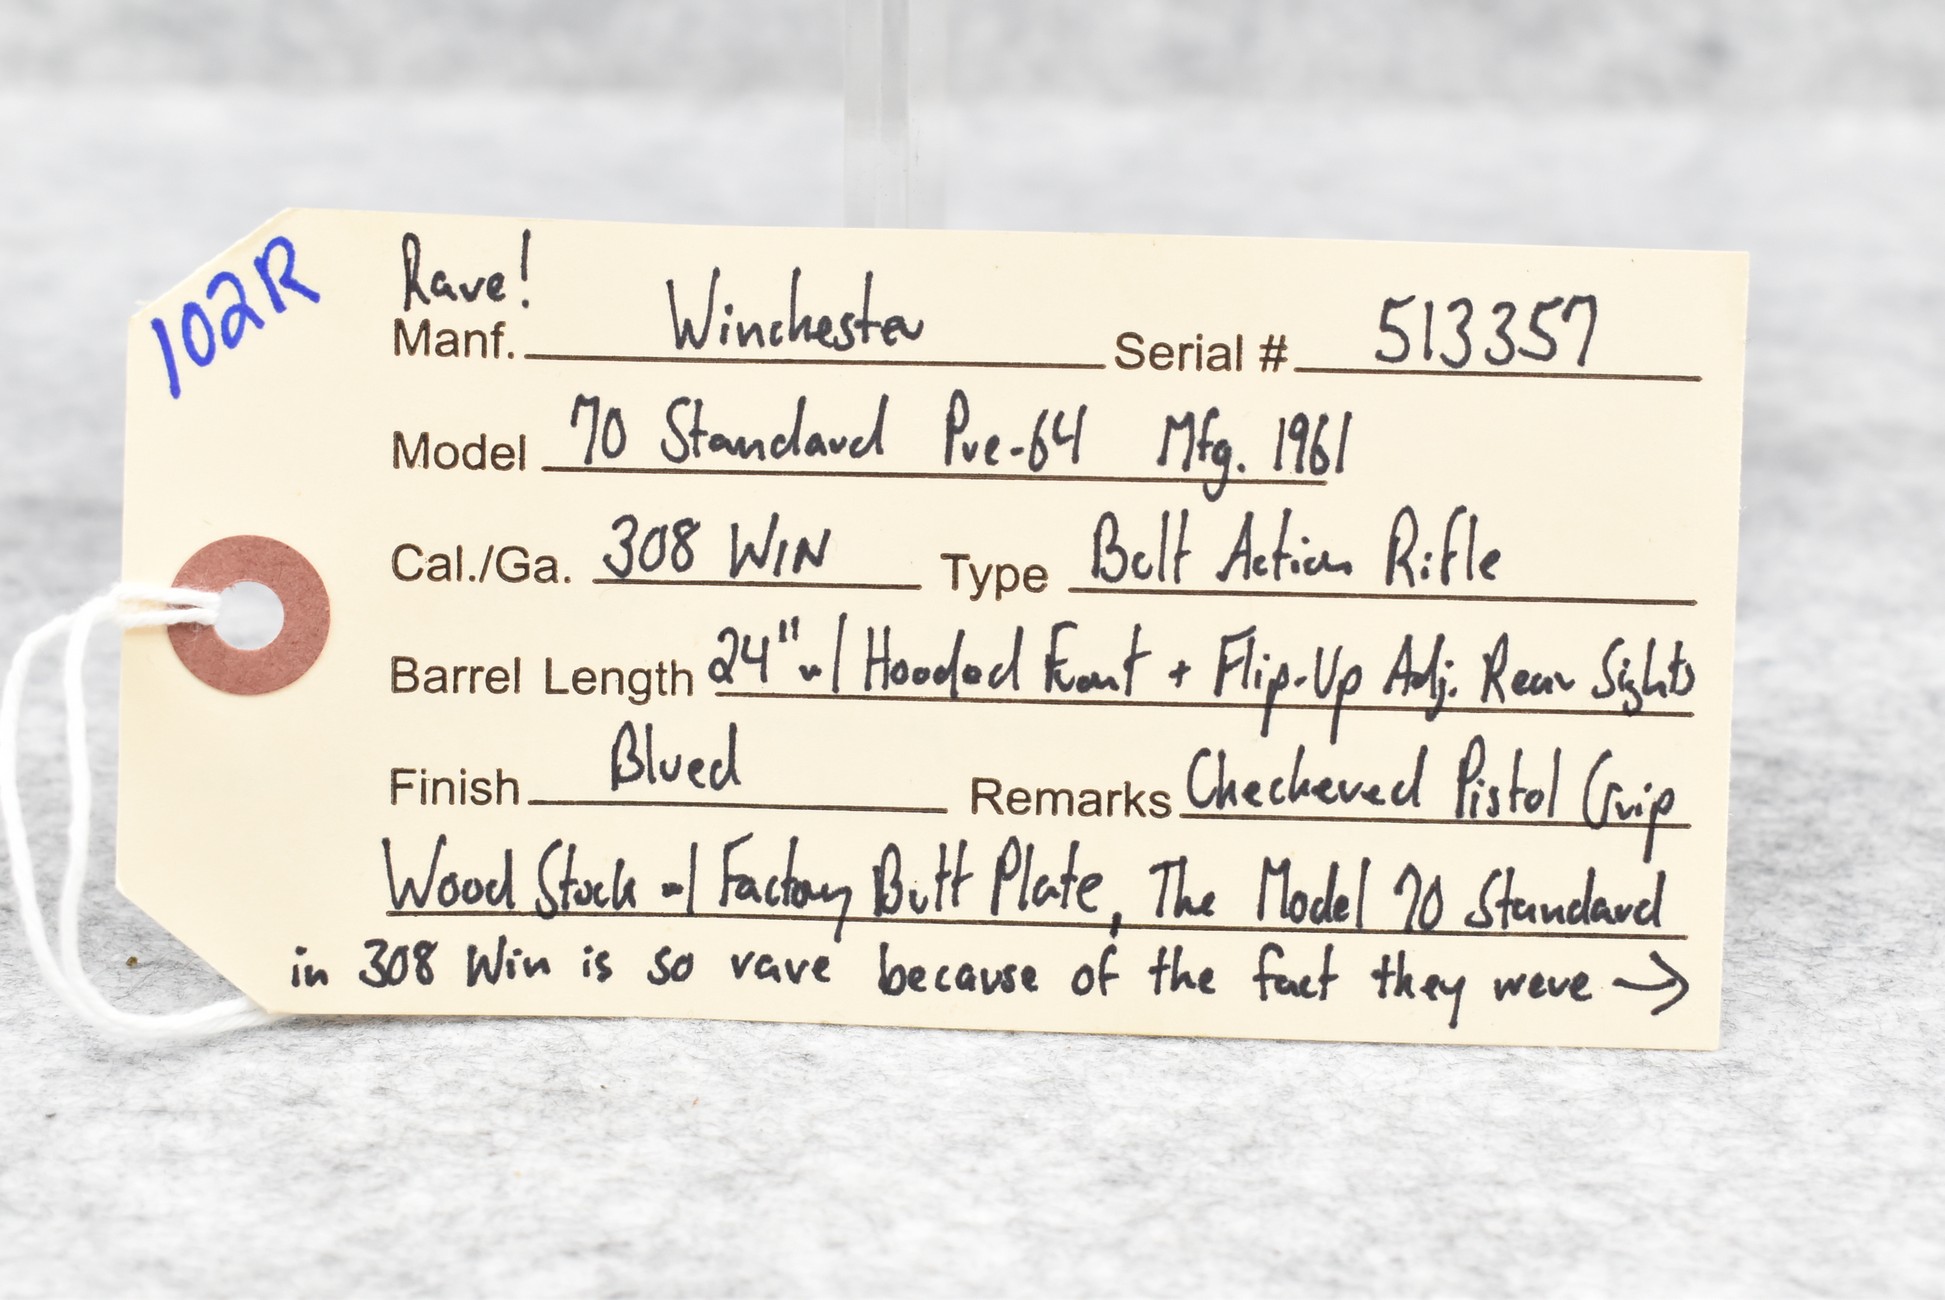 102R
Rare!
Manf. Winchester Serial # 513357
Model 70 Standard Pre-64 Mfg. 1961
Cal./Ga. 308 WIN Type Bolt Action Rifle
Barrel Length 24" w/ Hooded Front + Flip-Up Adj. Rear Sights
Finish Blued Remarks Checkered Pistol Grip
Wood Stock w/ Factory Butt Plate, The Model 70 Standard
in 308 Win is so rare because of the fact they were →